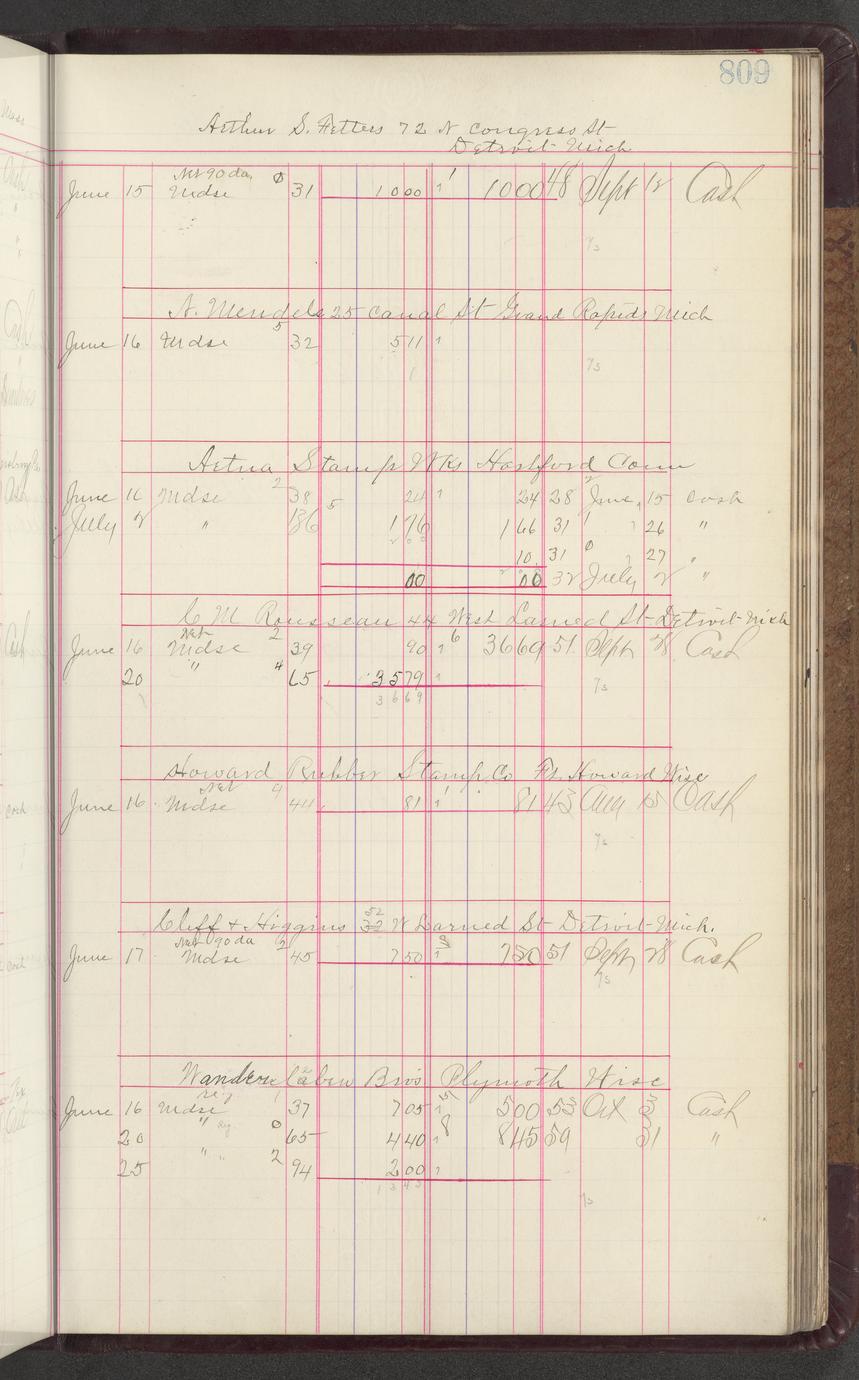 809
Arthur S. Fetters 72 N Congress St
Detroit Mich
Net 90 da
June 15 Mdse 0 31 1000 1 1 1000 48 Sept 12 Cash
7/3
N. Mendels 25 Canal St Grand Rapids Mich
June 16 Mdse 5 32 511 1
7/3
Aetna Stamp Wks Hartford Conn
June 16 Mdse 2 38 24 1 24 28 June 15 Cash
July 2 " 136 5 176 166 31 " 26 "
200 10 31 0 " 27 "
00 200 32 July 2 "
C M Rousseau 44 West Larned St Detroit Mich
Net
June 16 Mdse 2 39 90 1 6 3669 51 Sept 28 Cash
20 " 4 65 3579 1 7/3
3669
Howard Rubber Stamp Co Ft. Howard Wisc
Net
June 16 Mdse 9 44 81 1 1 81 43 Aug 15 Cash
7/3
52
Cliff & Higgins 32 W Larned St Detroit Mich.
Net 90 da
June 17 Mdse 2 45 750 1 750 51 Sept 28 Cash
7/3
Bros Plymouth Wisc
reg
June 16 Mdse 1 37 705 1 5 500 53 Oct 3 Cash
20 " Reg. 0 65 440 1 8 845 59 31 "
25 " " 2 94 200 1
1345
7/3